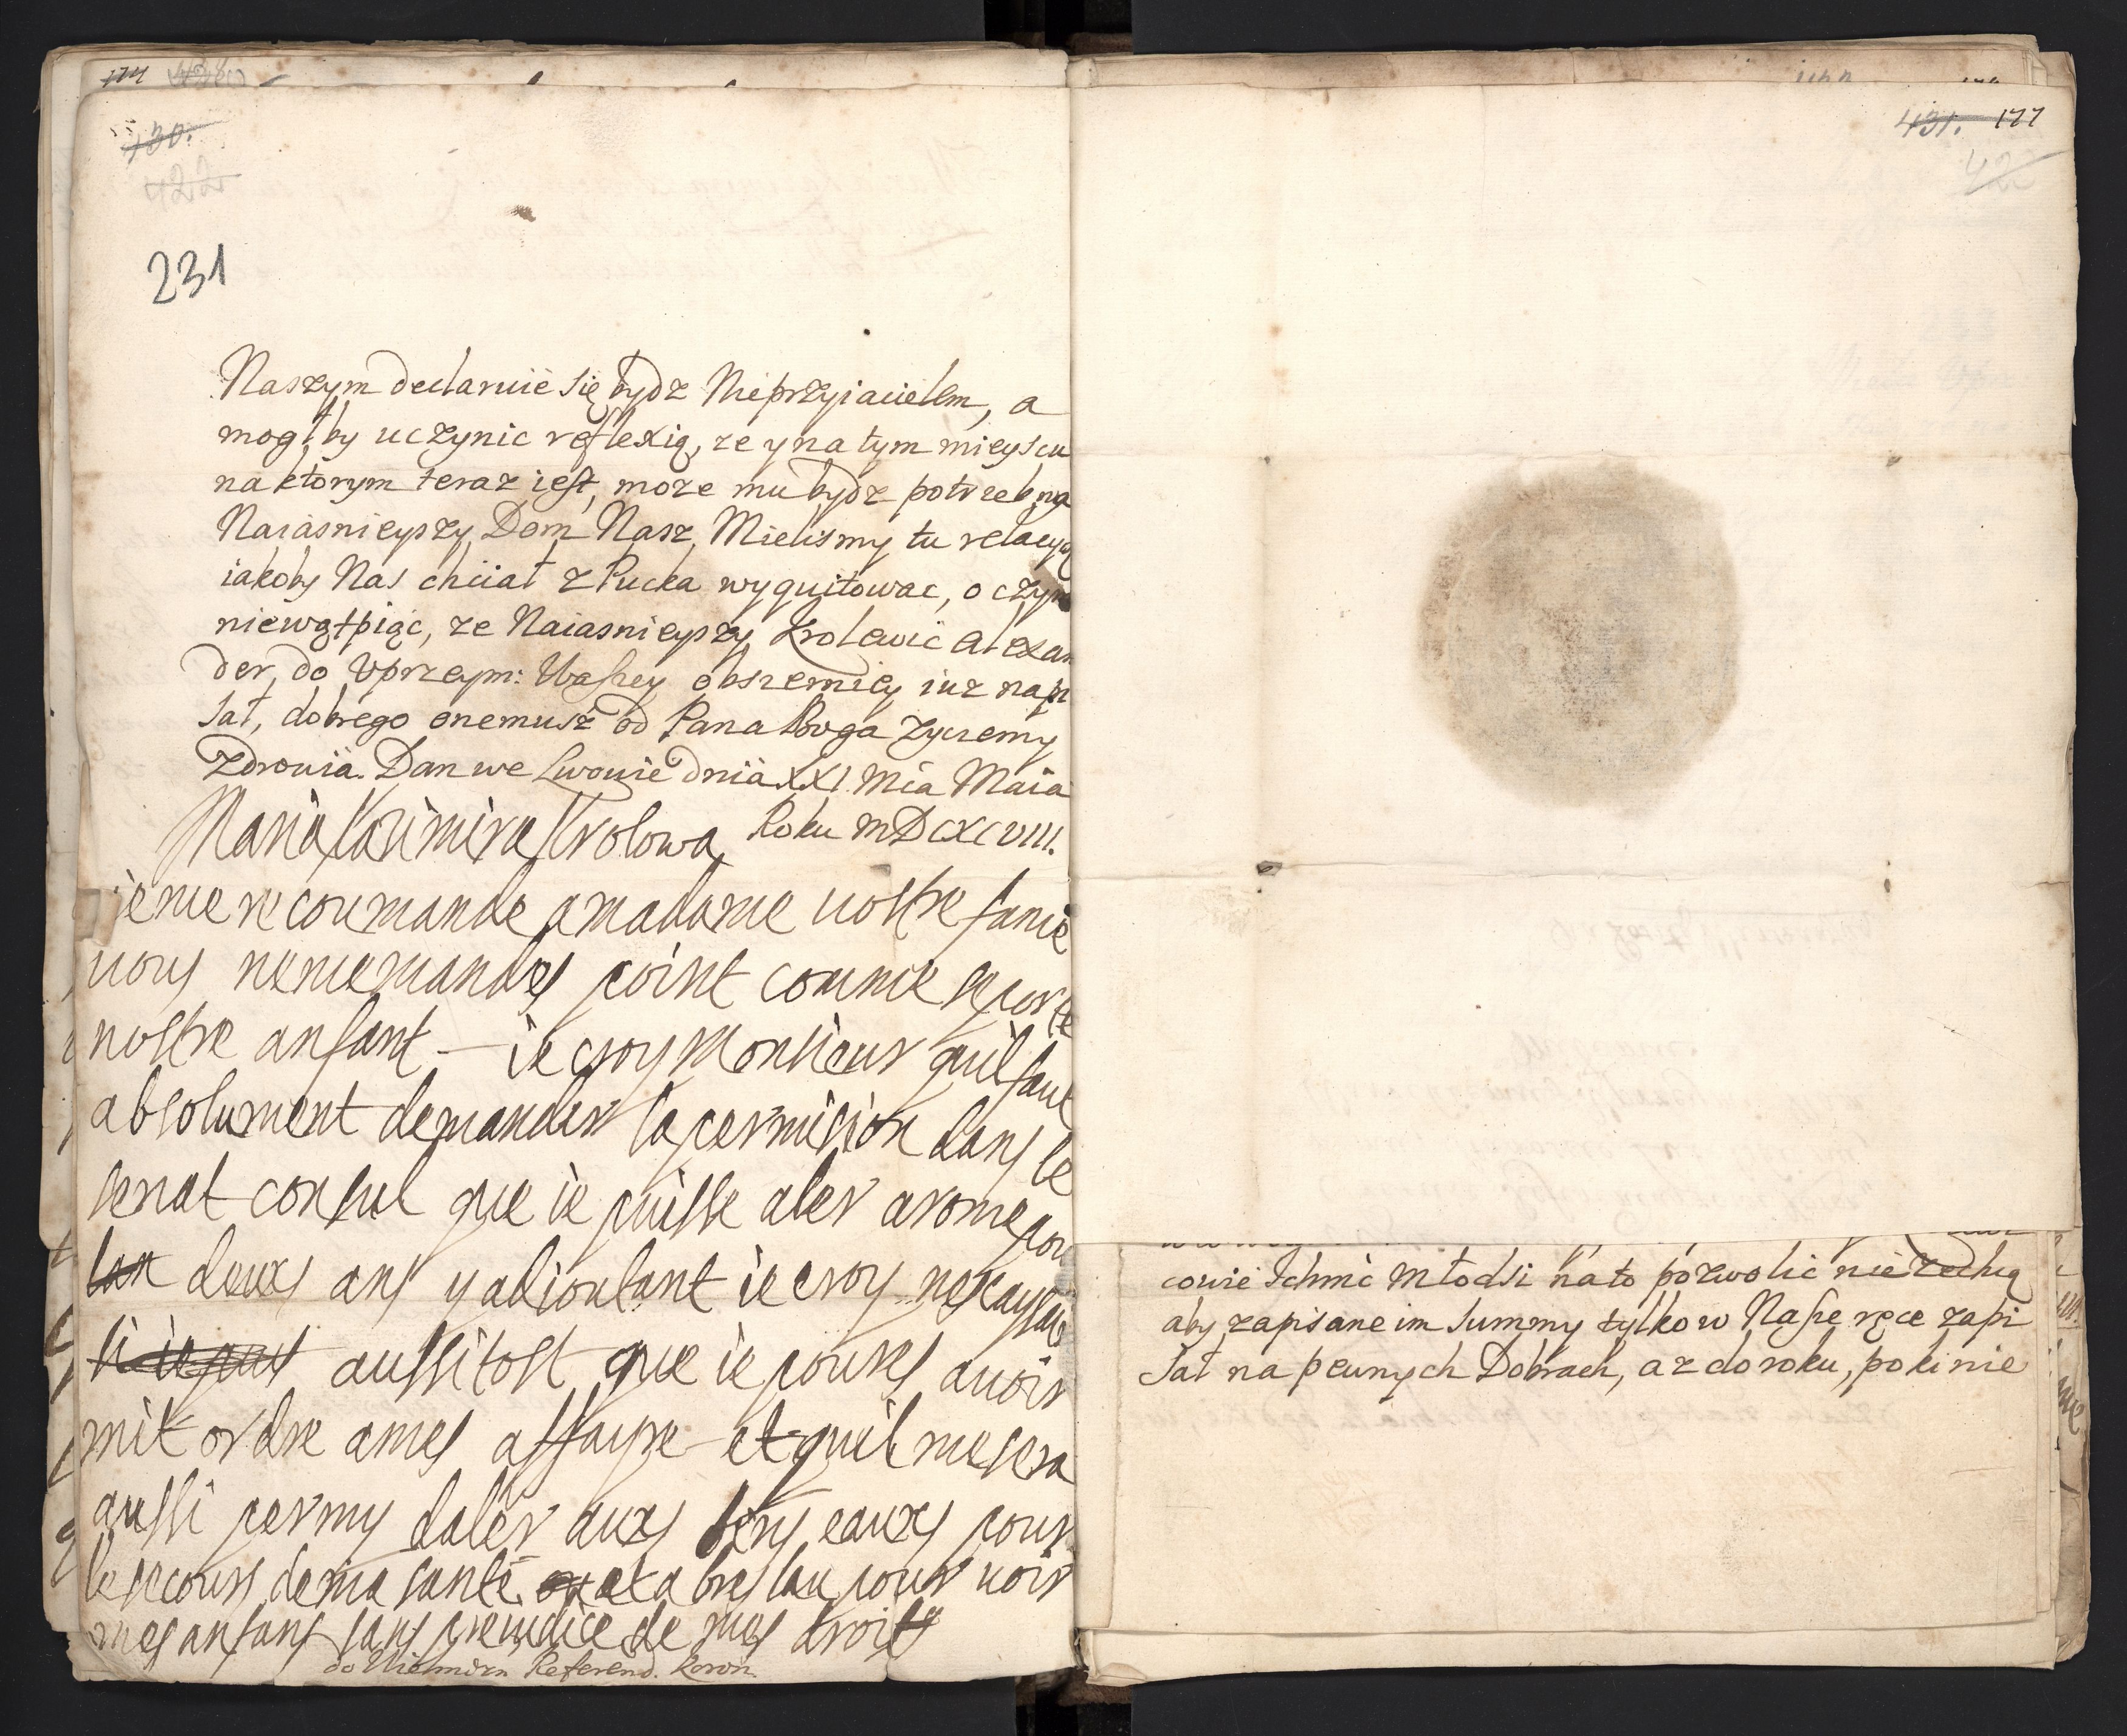 174
430.
422
231
Naszym declaruie się bydz Nieprzyiacielem, a
mogłby uczynic reflexią, ze y na tym mieyscu
na ktorym teraz iest, moze mu bydz potrzebny
Naiasnieyszy Dom Nasz, Mielismy tu relacyą
iakoby Nas chciał z Pucka wyguitowac, o czym
niewątpiąc, ze Naiasnieyszy Krolewic Alexan
der, do Vprzeym: Waszey obszerniey iuz napi
sał, dobrego onemusz od Pana Boga zyczemy
Zdrowia. Dan we Lwowie dnia XXI Mca Maia
Maria Kazimira Krolowa Roku MDCXCVIII.
ie me recoumande a madame uostre famie
uous ne me mandes point comme se porte
nostre anfant - ie croy Monsieur quil faut
absolument demander la permision dans le
senat consul que ie puisse aler a rome pou
lan deux ans y adioutant ie croy
si ie peus aussitost que ie poures auoir
mit ordre a mes affayre et quil me sera
aussi permy daler aux eaux pour
le secours de ma santé et a breslau pour uoir
mes anfans sans preiudice de mes droits
do Referend. Koron.
431. 177
42
cowie Ichmc Młodsi na to pozwolic nie zechcą
aby zapisane im Summy tylko w Nasze ręce zapi
sał na pewnych Dobrach, az do roku, poki nie